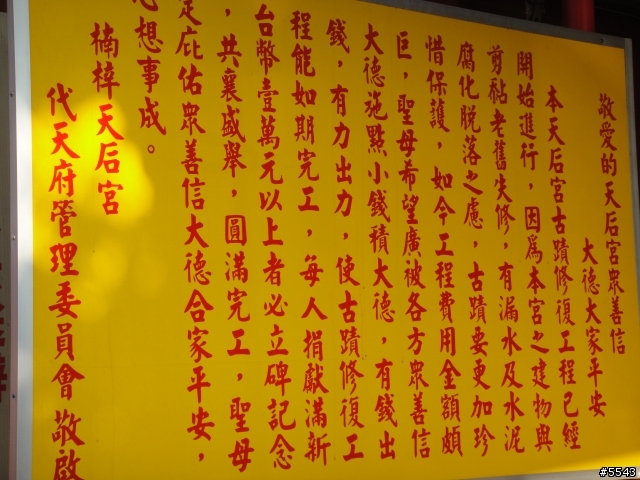 敬愛的天后宮眾善信
大德大家平安
本天后宮古蹟修復工程已經
開始進行，因為本宮之建物與
剪黏老舊失修，有漏水及水泥
腐化脫落之慮，古蹟要更加珍
惜保護，如今工程費用金額頗
巨，聖母希望廣被各方眾善信
大德施點小錢積大德，有錢出
錢，有力出力，使古蹟修復工
程能如期完工，每人捐獻滿新
台幣壹萬元以上者必立碑記念
，共襄盛舉，圓滿完工，聖母
定庇佑眾善信大德合家平安，
心想事成。
楠梓天后宮
代天府管理委員會敬啟
#5543